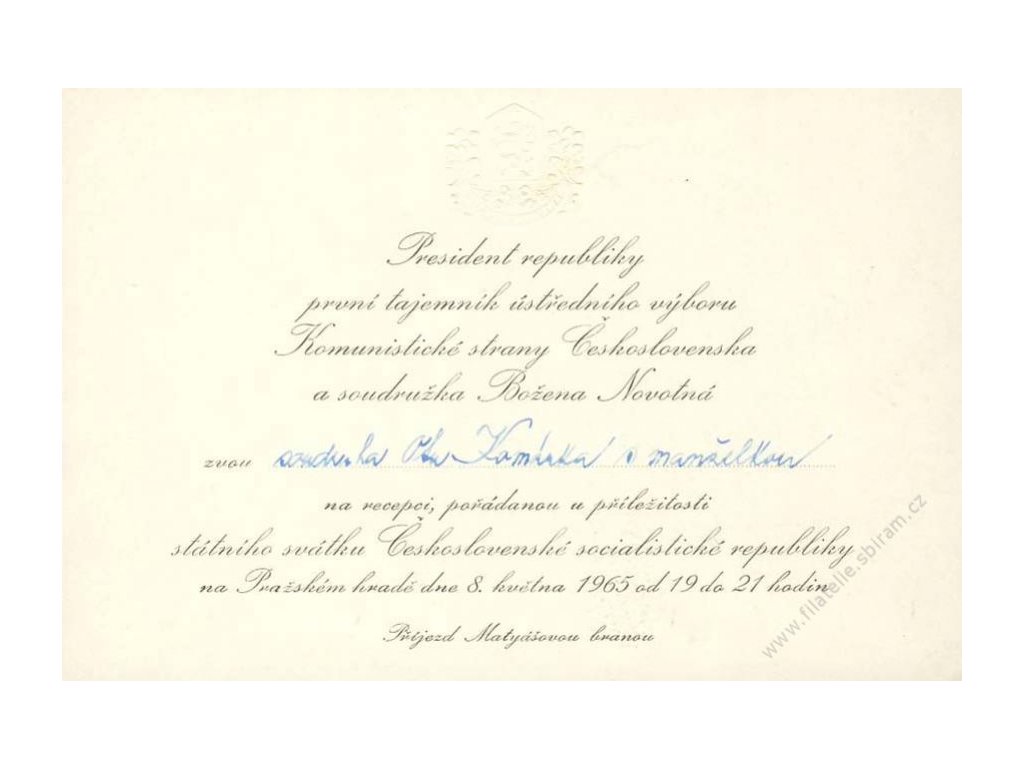 President republiky
první tajemník ústředního výboru
Komunistické strany Československa
a soudružka Božena Novotná
zvou soudruha Otu Komárka s manželkou
na recepci, pořádanou u příležitosti
státního svátku Československé socialistické republiky
na Pražském hradě dne 8. května 1965 od 19 do 21 hodin
Příjezd Matyášovou branou
www.filatelie.sbiram.cz